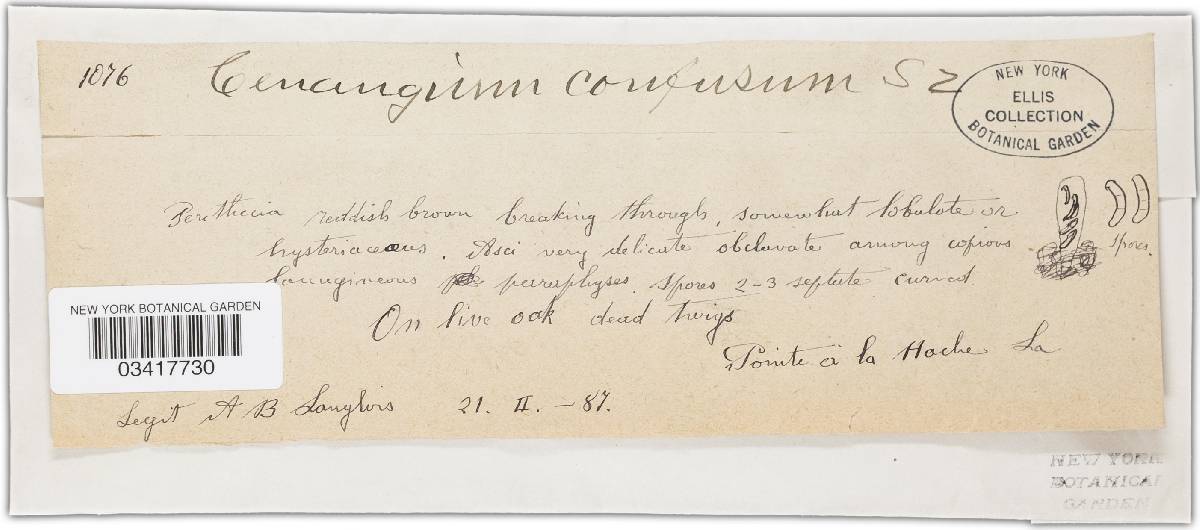 1076 Cenangium confusum Sz
NEW YORK
ELLIS
COLLECTION
BOTANICAL GARDEN
Perithecia reddish brown breaking through, somewhat lobulate or
hysteriaceous. Asci very delicate obclavate among copious
spores.
lanugineous parraphyses. Spores 2-3 septate curved.
On live oak dead twigs
Pointe à la Hache La
NEW YORK BOTANICAL GARDEN
03417730
Legit A B Langlois 21. II. -87.
NEW YORK
BOTANICAL
GARDEN